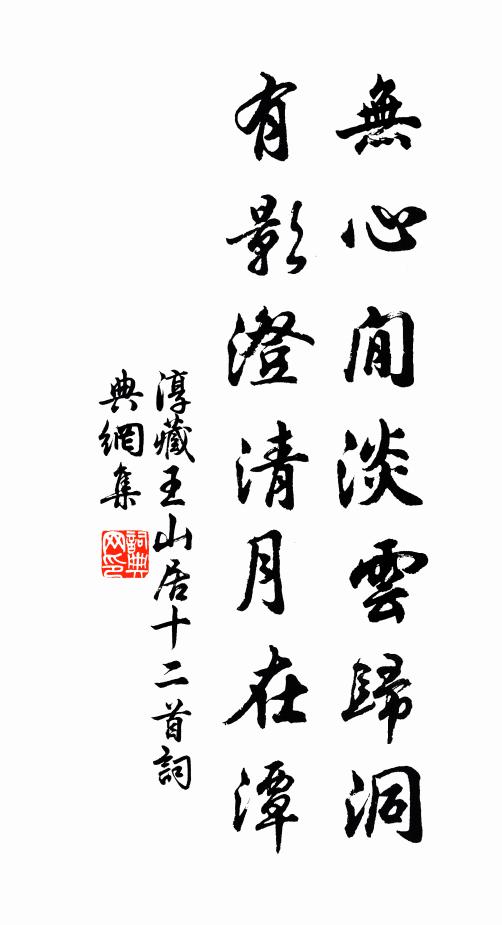 無心閒淡雲歸洞
有影澄清月在潭
淳藏王山居十二首詞
典網集
詞典
网印